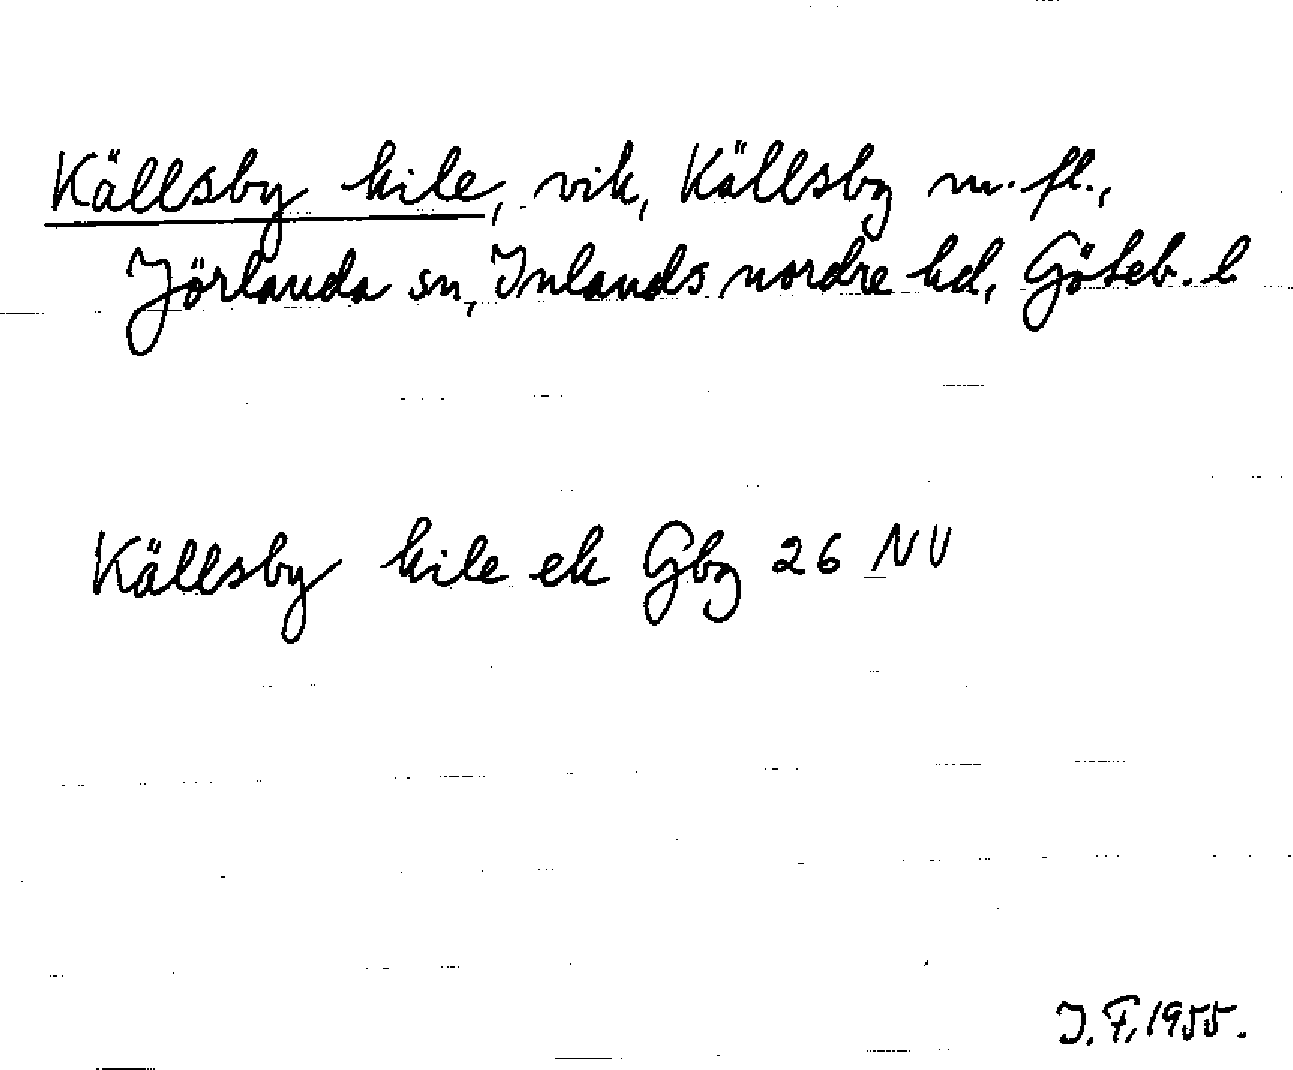 Källsby kile, vik, Källsby m.fl.,
Jörlanda sn, Inlands nordre hd, Göteb. l
Källsby kile ek Gbg 26 NV
J.F. 1955.